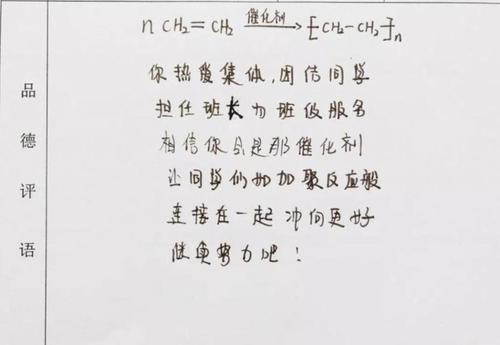 n CH₂=CH₂ 催化剂→ [CH₂-CH₂]n
你热爱集体,团结同学
担任班长为班级服务
相信你会是那催化剂
让同学们如加聚反应般
连接在一起 冲向更好
继续努力吧!
品
德
评
语